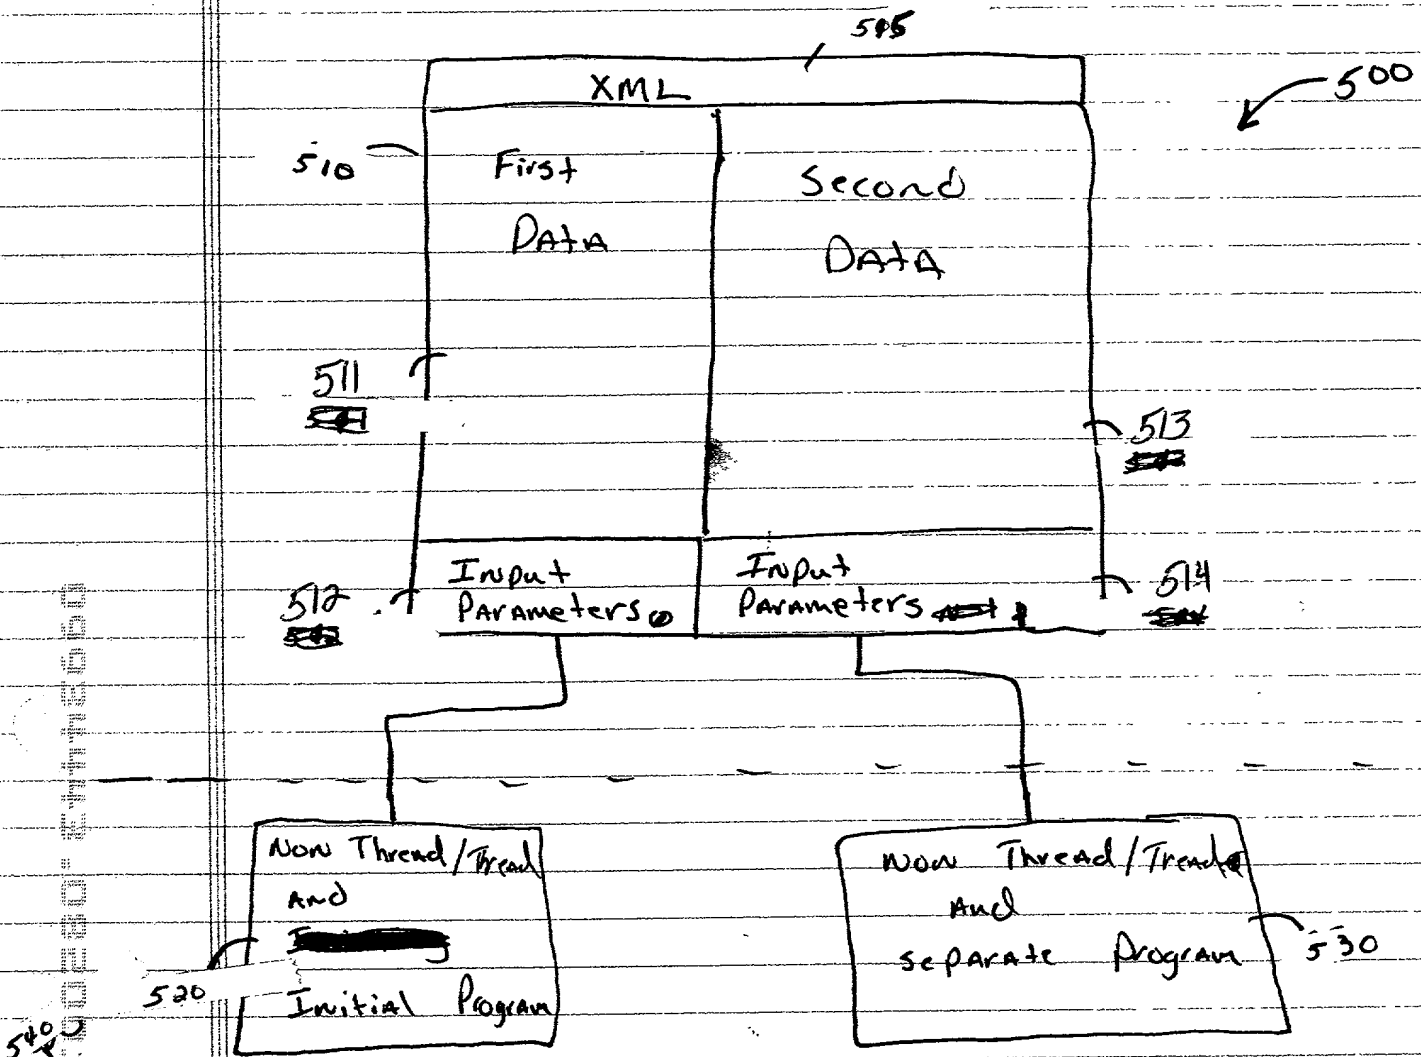 XML
500
510
First
Data
Second
Data
511
513
512
Input
Parameters
Input
Parameters
514
Non Thread/Tread
And
Initial Program
520
Non Thread/Tread
And
separate Program
530
540